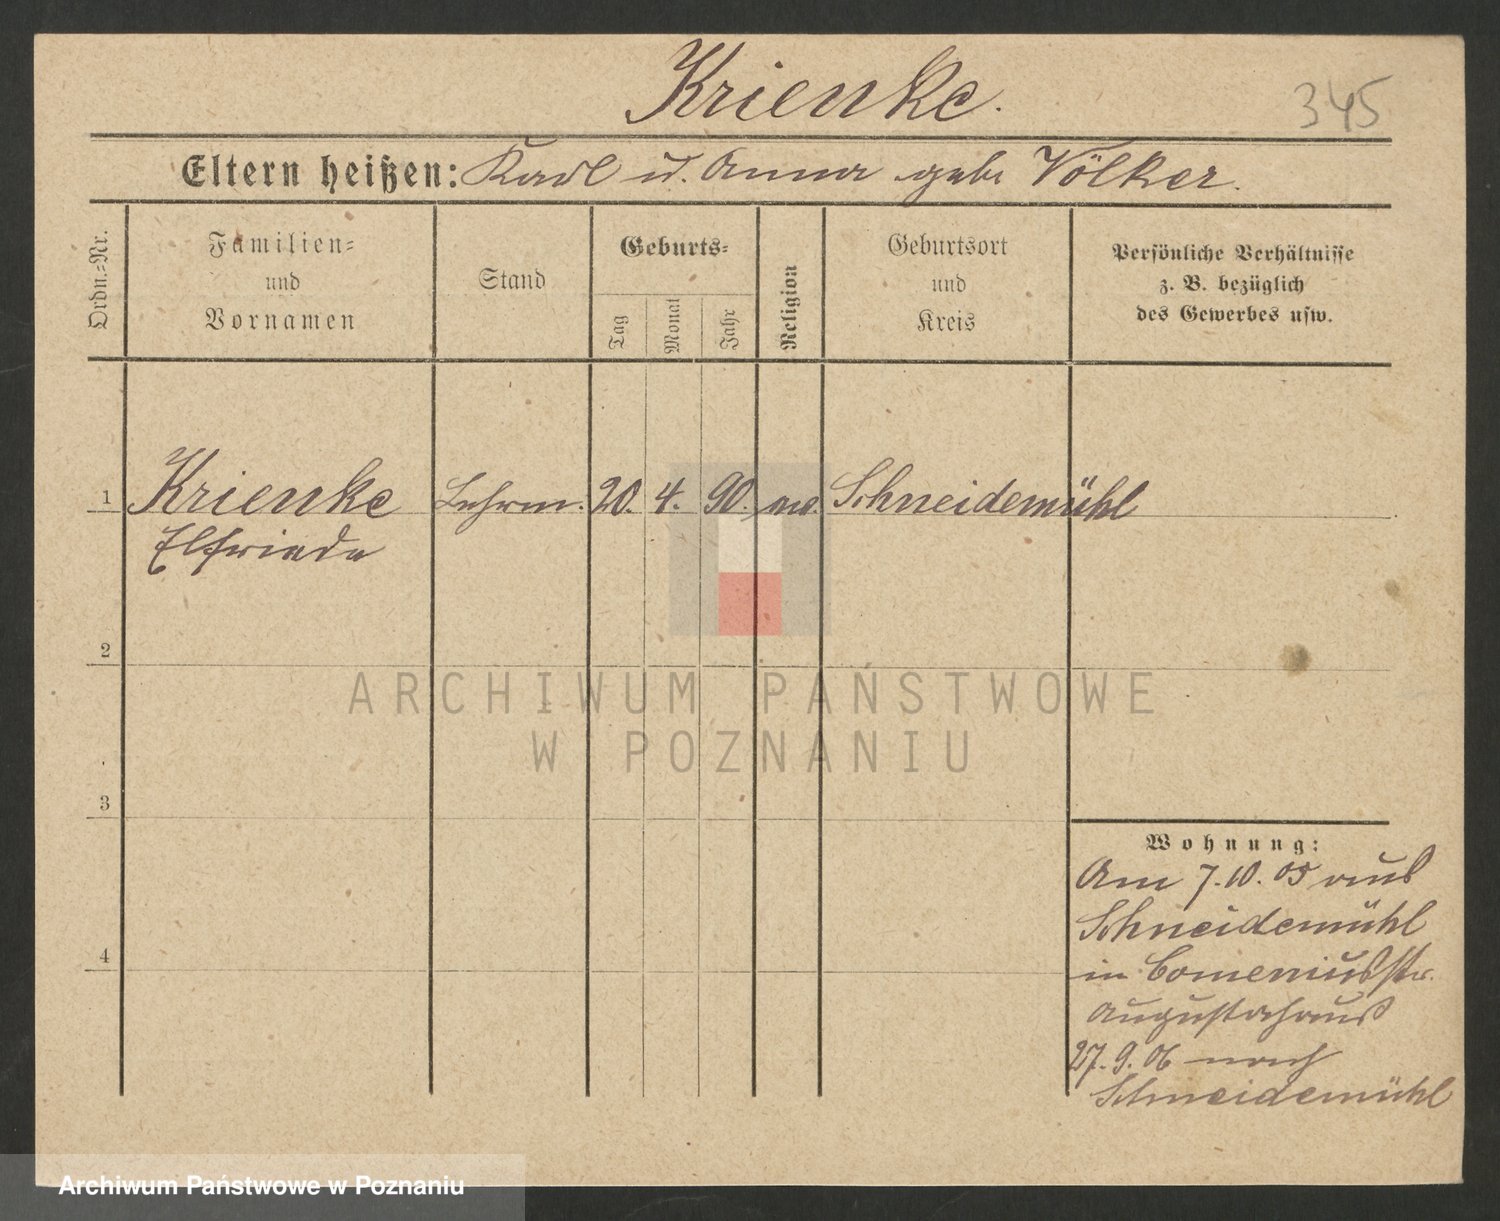 Krienke.
345
Eltern heißen: Karl u. Anna geb. Völker.
Ordn.=Nr.
Familien=
und
Vornamen
Stand
Geburts=
Tag
Monat
Jahr
Religion
Geburtsort
und
Kreis
Persönliche Verhältnisse
z. B. bezüglich
des Gewerbes usw.
1 Krienke 20. 4. 90. ev. Schneidemühl
Elfriede
2
3
4
Wohnung:
Am 7.10.05 aus
Schneidemühl
in Comeniusstr.
Augustahaus
27.9.06 nach
Schneidemühl
ARCHIWUM PAŃSTWOWE
W POZNANIU
Archiwum Państwowe w Poznaniu